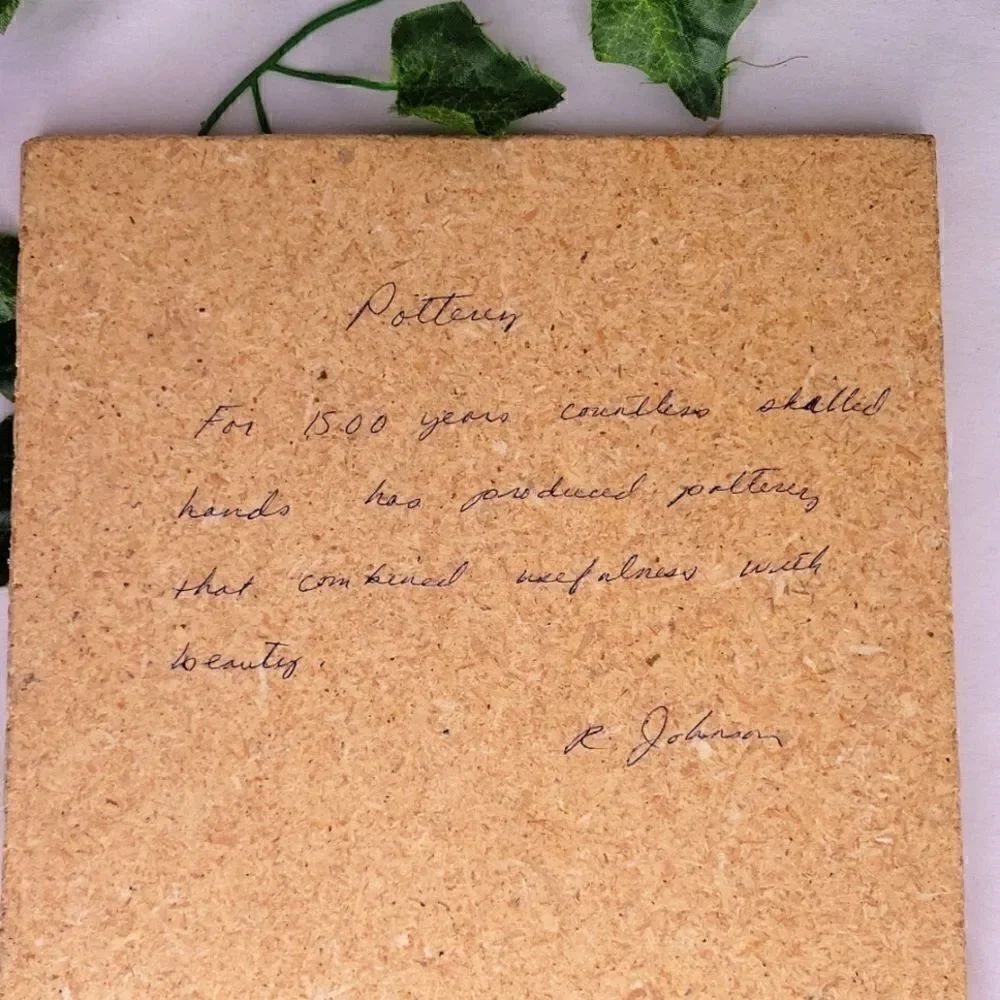 Pottery
For 1500 years countless skilled
hands has produced pottery
that combined usefulness with
beauty.
R. Johnson